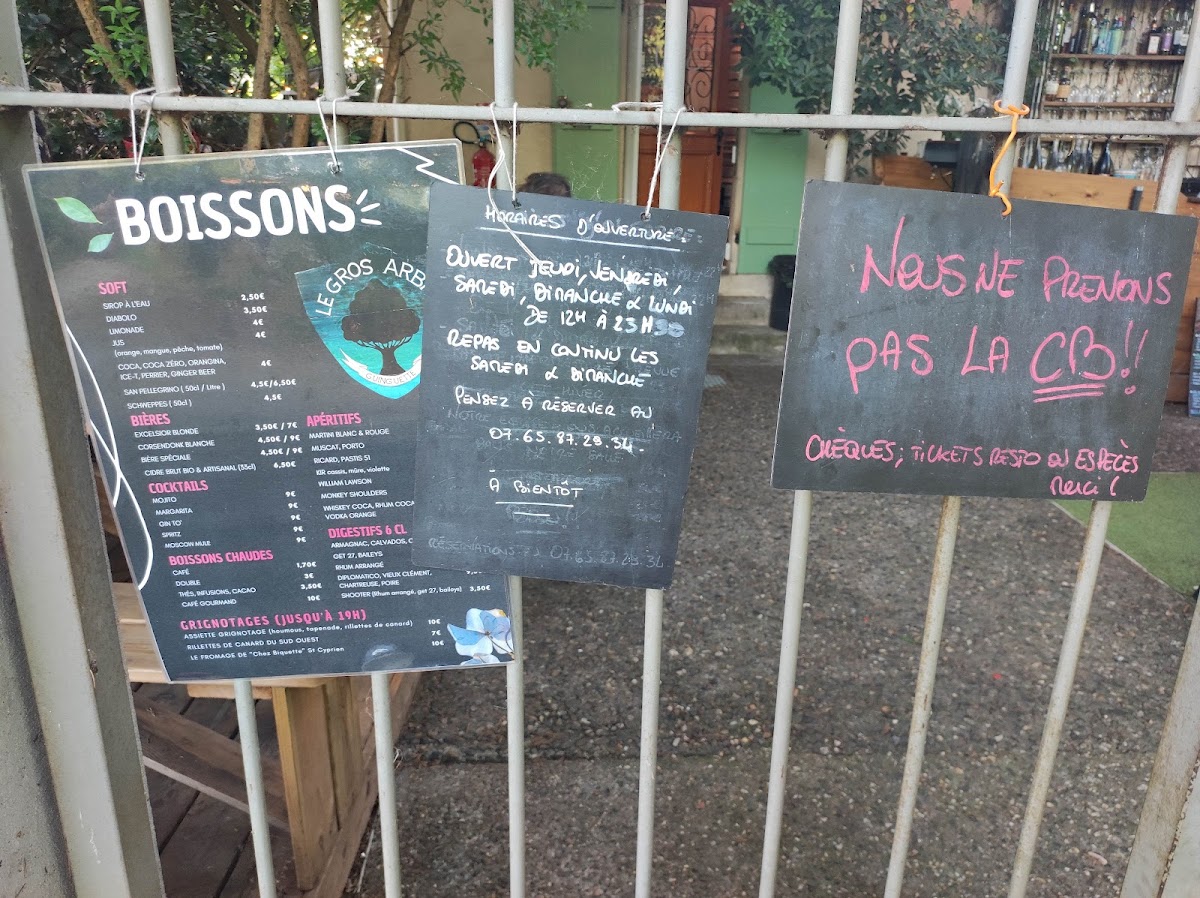 BOISSONS
LE GROS ARB
GUINGUETTE
SOFT
SIROP À L'EAU 2,50€
DIABOLO 3,50€
LIMONADE 4€
JUS 4€
(orange, mangue, pêche, tomate)
COCA, COCA ZÉRO, ORANGINA, 4€
ICE-T, PERRIER, GINGER BEER
SAN PELLEGRINO ( 50cl / Litre ) 4,5€/6,50€
SCHWEPPES ( 50cl ) 4,5€
BIÈRES
EXCELSIOR BLONDE 3,50€ / 7€
CORSENDONK BLANCHE 4,50€ / 9€
BIÈRE SPÉCIALE 4,50€ / 9€
CIDRE BRUT BIO & ARTISANAL (33cl) 6,50€
COCKTAILS
MOJITO 9€
MARGARITA 9€
GIN TO' 9€
SPRITZ 9€
MOSCOW MULE 9€
BOISSONS CHAUDES
CAFÉ 1,70€
DOUBLE 3€
THÉS, INFUSIONS, CACAO 3,50€
CAFÉ GOURMAND 10€
APÉRITIFS
MARTINI BLANC & ROUGE
MUSCAT, PORTO
RICARD, PASTIS 51
KIR cassis, mûre, violette
WILLIAM LAWSON
MONKEY SHOULDERS
WHISKEY COCA, RHUM COCA
VODKA ORANGE
DIGESTIFS 6 CL
ARMAGNAC, CALVADOS, C
GET 27, BAILEYS
RHUM ARRANGÉ
DIPLOMATICO, VIEUX CLÉMENT,
CHARTREUSE, POIRE
SHOOTER (Rhum arrangé, get 27, baileys) 3,50€
GRIGNOTAGES (JUSQU'À 19H)
ASSIETTE GRIGNOTAGE (houmous, tapenade, rillettes de canard) 10€
RILLETTES DE CANARD DU SUD OUEST 7€
LE FROMAGE DE "Chez Biquette" St Cyprien 10€
HORAIRES D'OUVERTURE
OUVERT JEUDI, VENDREDI,
SAMEDI, DIMANCHE & LUNDI
DE 12H À 23H30
REPAS EN CONTINU LES
SAMEDI & DIMANCHE
PENSEZ A RÉSERVER AU
07.65.87.29.34
A BIENTÔT
RÉSERVATIONS 07.65.87.29.34
NOUS NE PRENONS
PAS LA CB!!
CHÈQUES, TICKETS RESTO OU ESPÈCES
Merci !